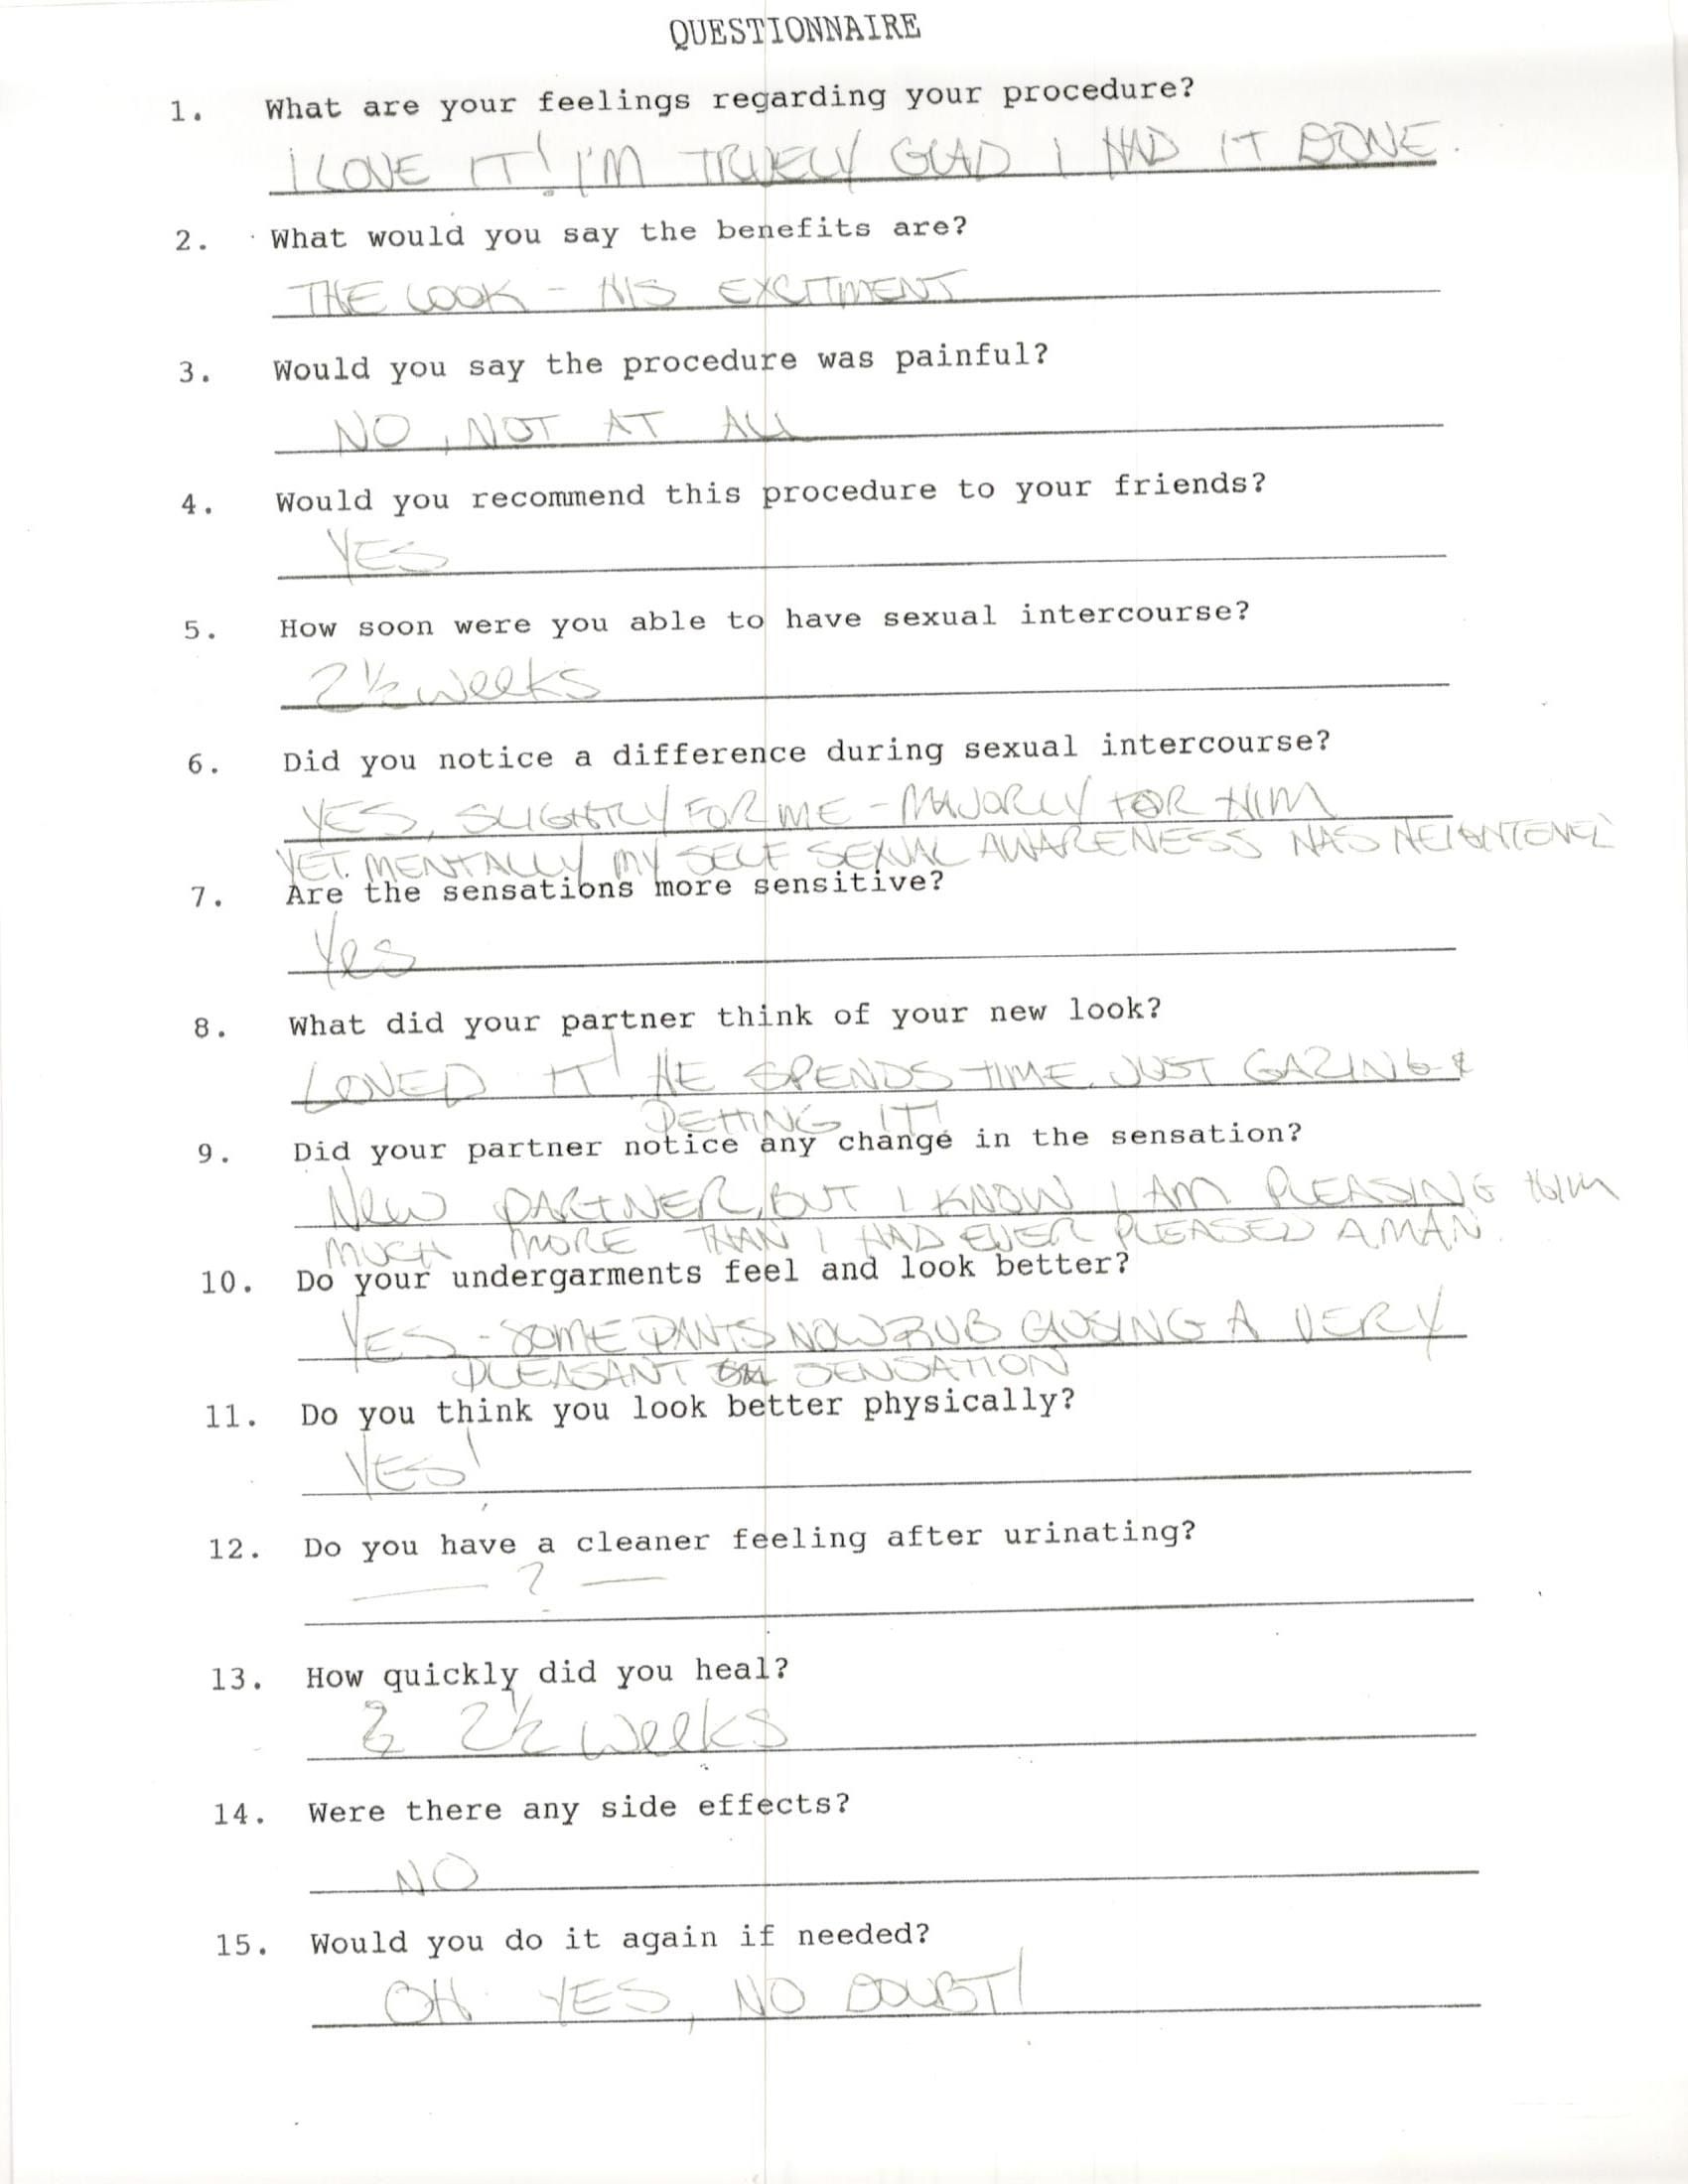 QUESTIONNAIRE
1. What are your feelings regarding your procedure?
I LOVE IT! I'M TRUELY GLAD I HAD IT DONE.
2. What would you say the benefits are?
THE LOOK - HIS EXCITMENT
3. Would you say the procedure was painful?
NO, NOT AT ALL
4. Would you recommend this procedure to your friends?
YES
5. How soon were you able to have sexual intercourse?
2 ½ weeks
6. Did you notice a difference during sexual intercourse?
YES, SLIGHTLY FOR ME - MAJORLY FOR HIM
YET. MENTALLY MY SELF SEXUAL AWARENESS HAS HEIGHTENED
7. Are the sensations more sensitive?
Yes
8. What did your partner think of your new look?
LOVED IT! HE SPENDS TIME JUST GAZING &
PETTING IT!
9. Did your partner notice any change in the sensation?
New PARTNER, BUT I KNOW I AM PLEASING HIM
MUCH MORE THAN I HAD EVER PLEASED A MAN.
10. Do your undergarments feel and look better?
YES - SOME PANTS NOW RUB CAUSING A VERY
PLEASANT SENSATION
11. Do you think you look better physically?
YES!
12. Do you have a cleaner feeling after urinating?
— ? —
13. How quickly did you heal?
2 ½ weeks
14. Were there any side effects?
NO
15. Would you do it again if needed?
OH YES, NO DOUBT!